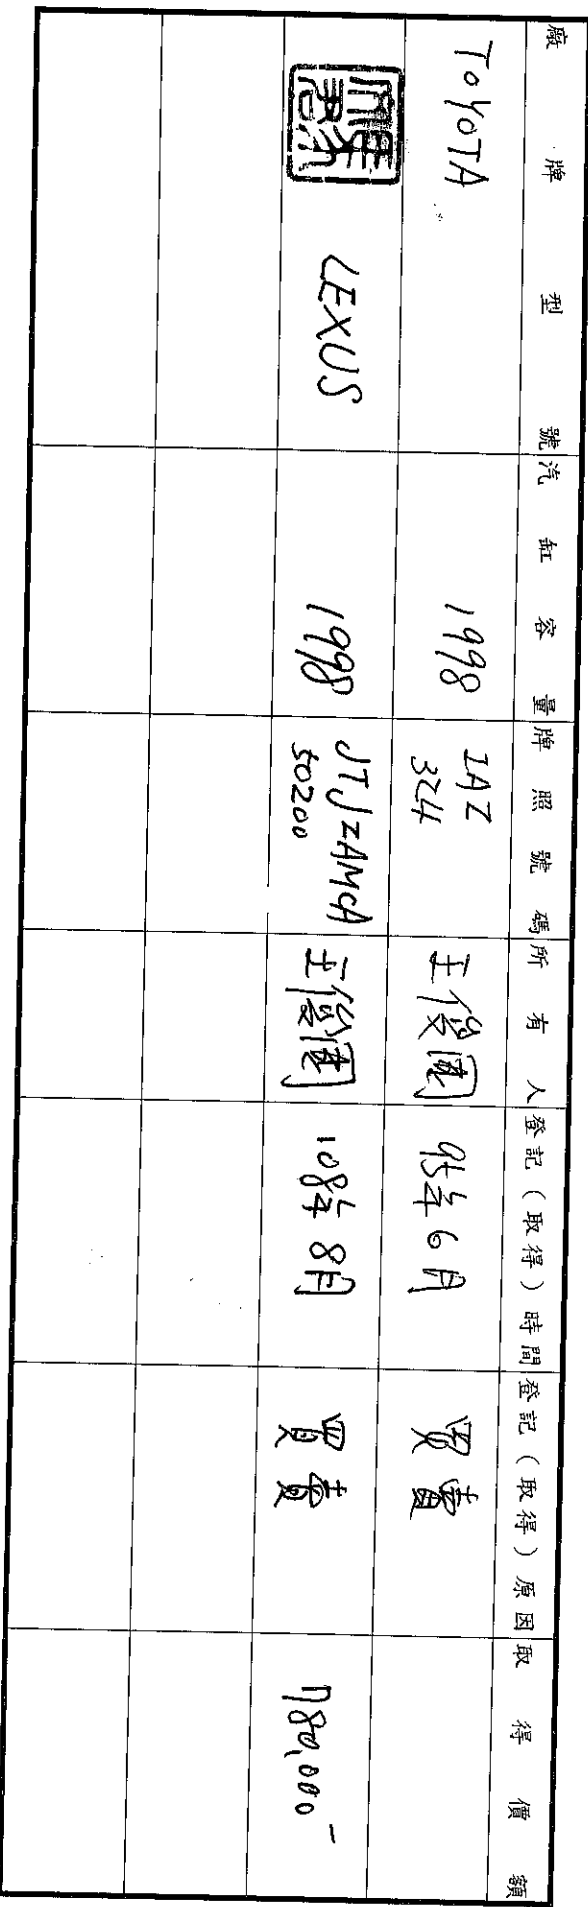 廠牌型號 汽缸容量 牌照號碼 所有人 登記（取得）時間 登記（取得）原因 取得價額
TOYOTA 1998 IAZ 324 王俊 95年6月 買賣
LEXUS 1998 JTJZAMCA 50200 王俊 108年8月 買賣 780,000-